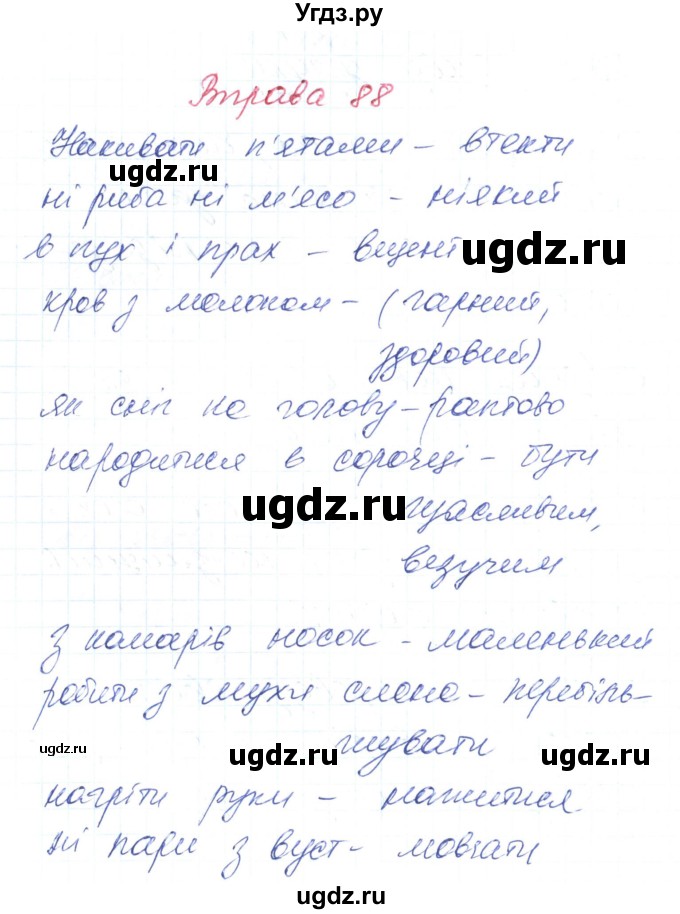 Угдз.ру
Вправа 88
Накивати п'ятами – втекти
ні риба ні м'ясо – ніякий
в пух і прах – вщент
ugdz.ru
кров з молоком – (гарний,
здоровий)
як сніг на голову – раптово
народитися в сорочці – бути
ugdz.ru
щасливим,
везучим
з комарів носок – маленький
робити з мухи слона – перебіль-
шувати
ugdz.ru
ugdz.ru
ugdz.ru
нагріти руки – нажитися
ні пари з вуст – мовчати
ugdz.ru